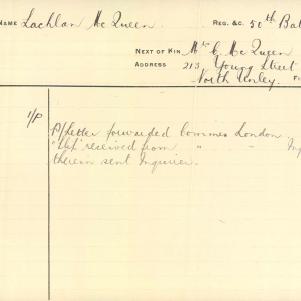 NAME Lachlan McQueen REG. &C. 50th Bat
NEXT OF KIN Mrs C McQueen
ADDRESS 213 Young Street
North Unley.
1/P
P/Letter forwarded Commis London.
"Rep" received from " "
therein sent Inquirer.